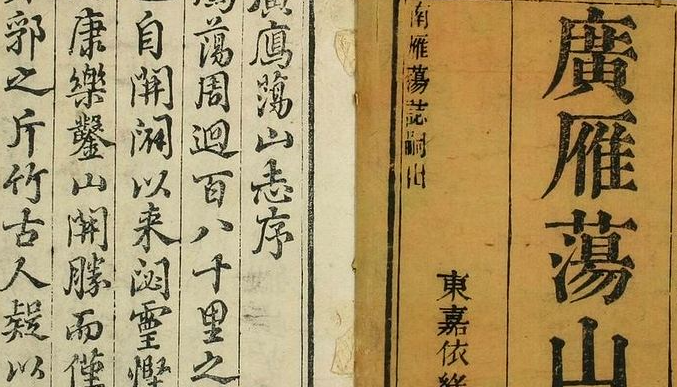 廣雁蕩山
東嘉依綠
南雁蕩誌嗣出
廣鴈蕩山志序
蕩周迴百八十里之
自開闢以来泌靈慳
康樂鑿山開勝而僅
郭之斤竹古人疑以